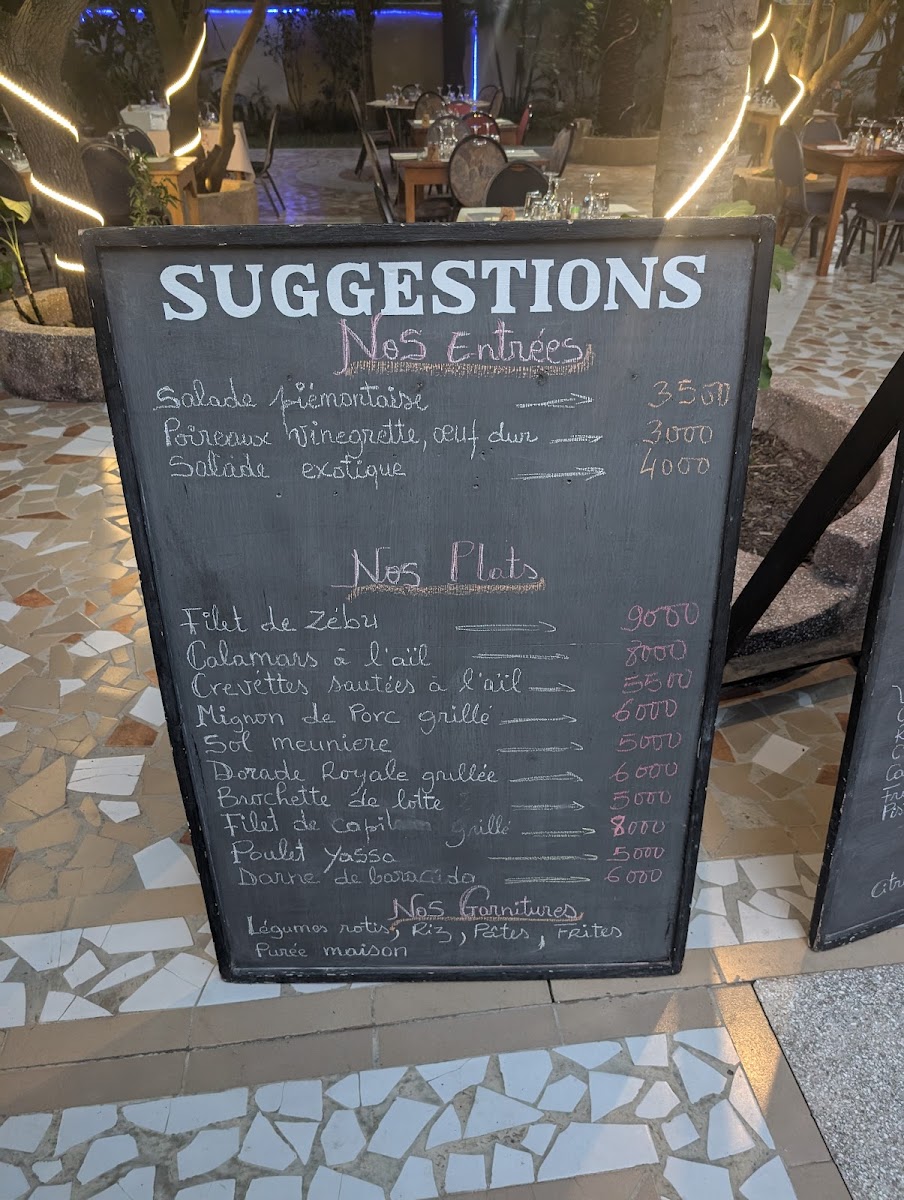 SUGGESTIONS
Nos Entrées
Salade piémontaise → 3500
Poireaux vinegrette, œuf dur → 3000
Salade exotique → 4000
Nos Plats
Filet de Zébu → 9000
Calamars à l'aïl → 8000
Crevettes sautées à l'aïl → 5500
Mignon de Porc grillé → 6000
Sol meuniere → 5000
Dorade Royale grillée → 6000
Brochette de lotte → 5000
Filet de grillé → 8000
Poulet Yassa → 5000
Darne de baracuda → 6000
Nos Garnitures
Légumes rotis, Riz, Pâtes, Frites
Purée maison
Citr